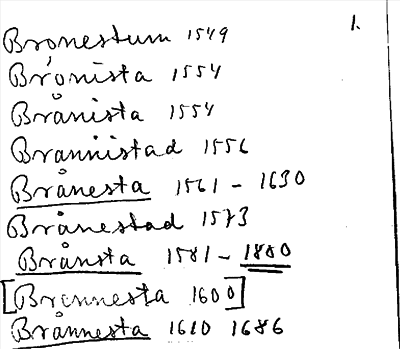 1.
Bronestum 1549
Brönista 1554
Brånista 1554
Brannistad 1556
Brånesta 1561 - 1630
Brånestad 1573
Brånsta 1581 - 1880
[Brennesta 1600]
Brånnesta 1610 1686